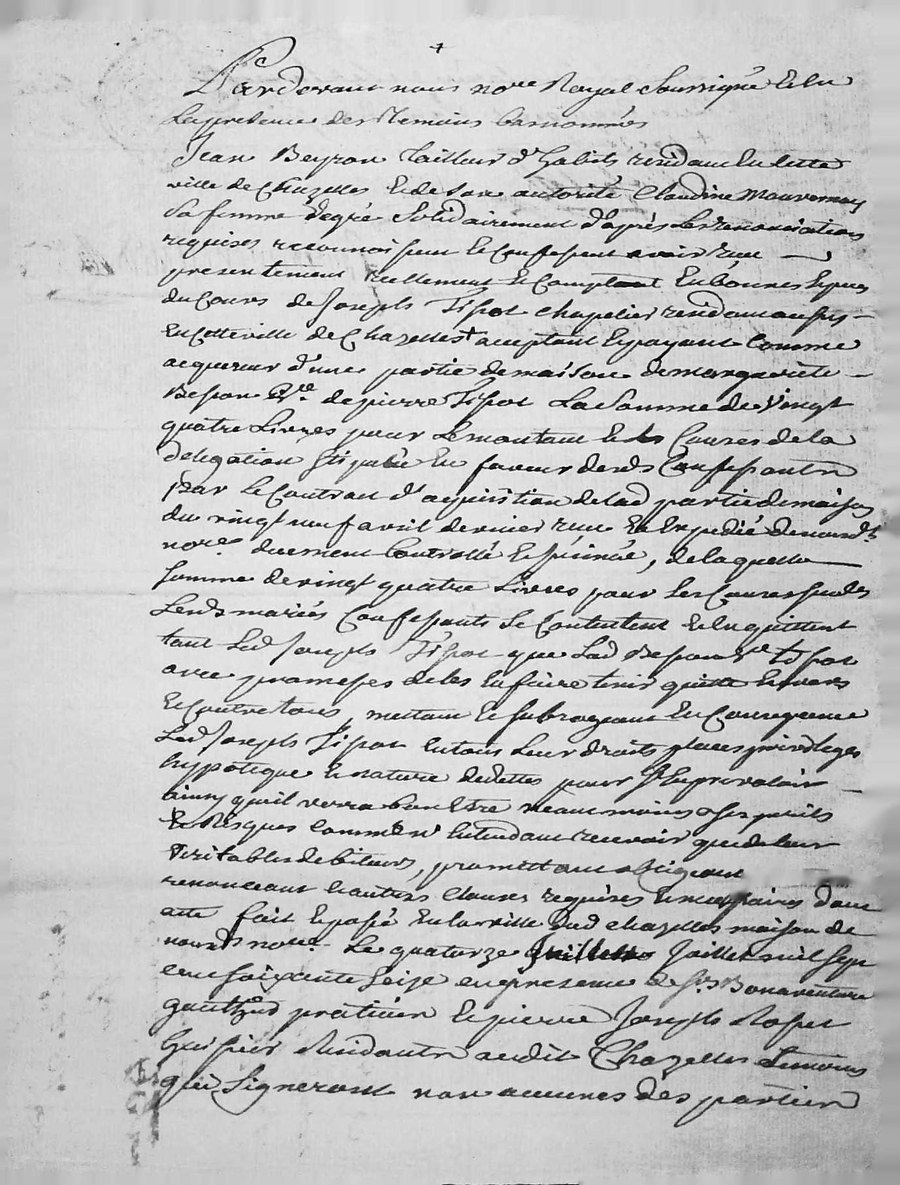 Pardevant nous no.re Royal Soussigné et en
La presence des temoins bas nommés
Jean Beyron tailleur d'habits residant en cette
ville de Chazelles et de son autorité Claudine Mauvernay
Sa femme degré Solidairement d'après les renonciations
requises reconnoissent et confessent avoir reçu
presentement reellement et comptant en bonnes especes
du Cours de Joseph Tissot chapelier residant aussy
en cette ville de Chazelles + acceptant et payant comme
acquereur d'une partie de maison de marguerite
Besson v.ve de pierre Tissot La Somme de vingt
quatre Livres pour le montant et les Causes de la
delegation stipulée en faveur desd.s Confessants
par le Contrat d'acquisition de lad partie de maison
du vingt neuf avril dernier reçu et expedié de nousd.t
no.re duement Controllé et , de laquelle
somme de vingt quatre Livres pour les Causes susd.es
Lesd.s mariés Confessants se Contentent et en quittent
tant Led Joseph Tissot que Lad Besson v.ve tissot
avec promesses de les en faire tenir quitte envers
et Contre tous, mettant et subrogeant en Consequence
Led Joseph Tissot en tous leur droits places privileges
hypoteque et nature de dettes pour s'en prevaloir
ainsy qu'il verra bon être neanmoins à ses perils
et Risques comme n'entendant recevoir que de leur
veritables debiteurs, promettant obligeant
renonceant et autres clauses requises et necessaires dont
acte fait et passé en lad ville dud chazelles maison de
nousd.t no.re Le quatorze Juillet mil sept
cent soixante seize en presence de S.r Bonaventure
praticien et pierre Joseph
huissier Residants audit Chazelles temoins
qui Signeront non aucunes des parties